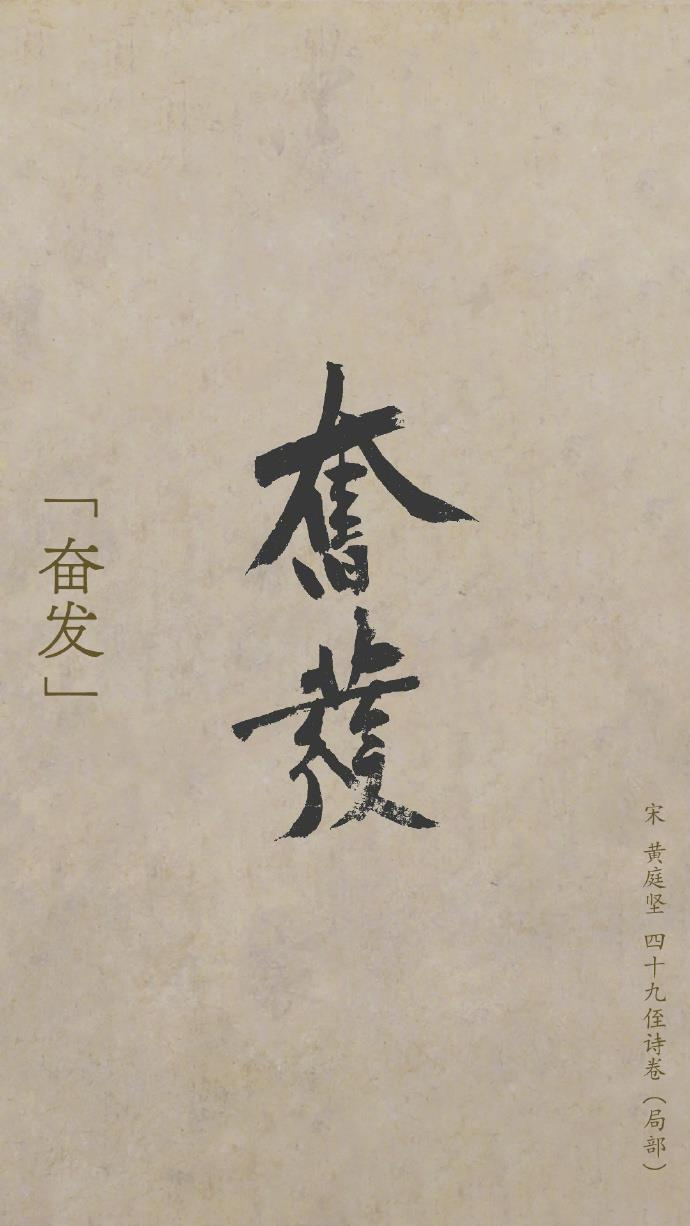 奮發
「奋发」
宋 黄庭坚 四十九侄诗卷（局部）